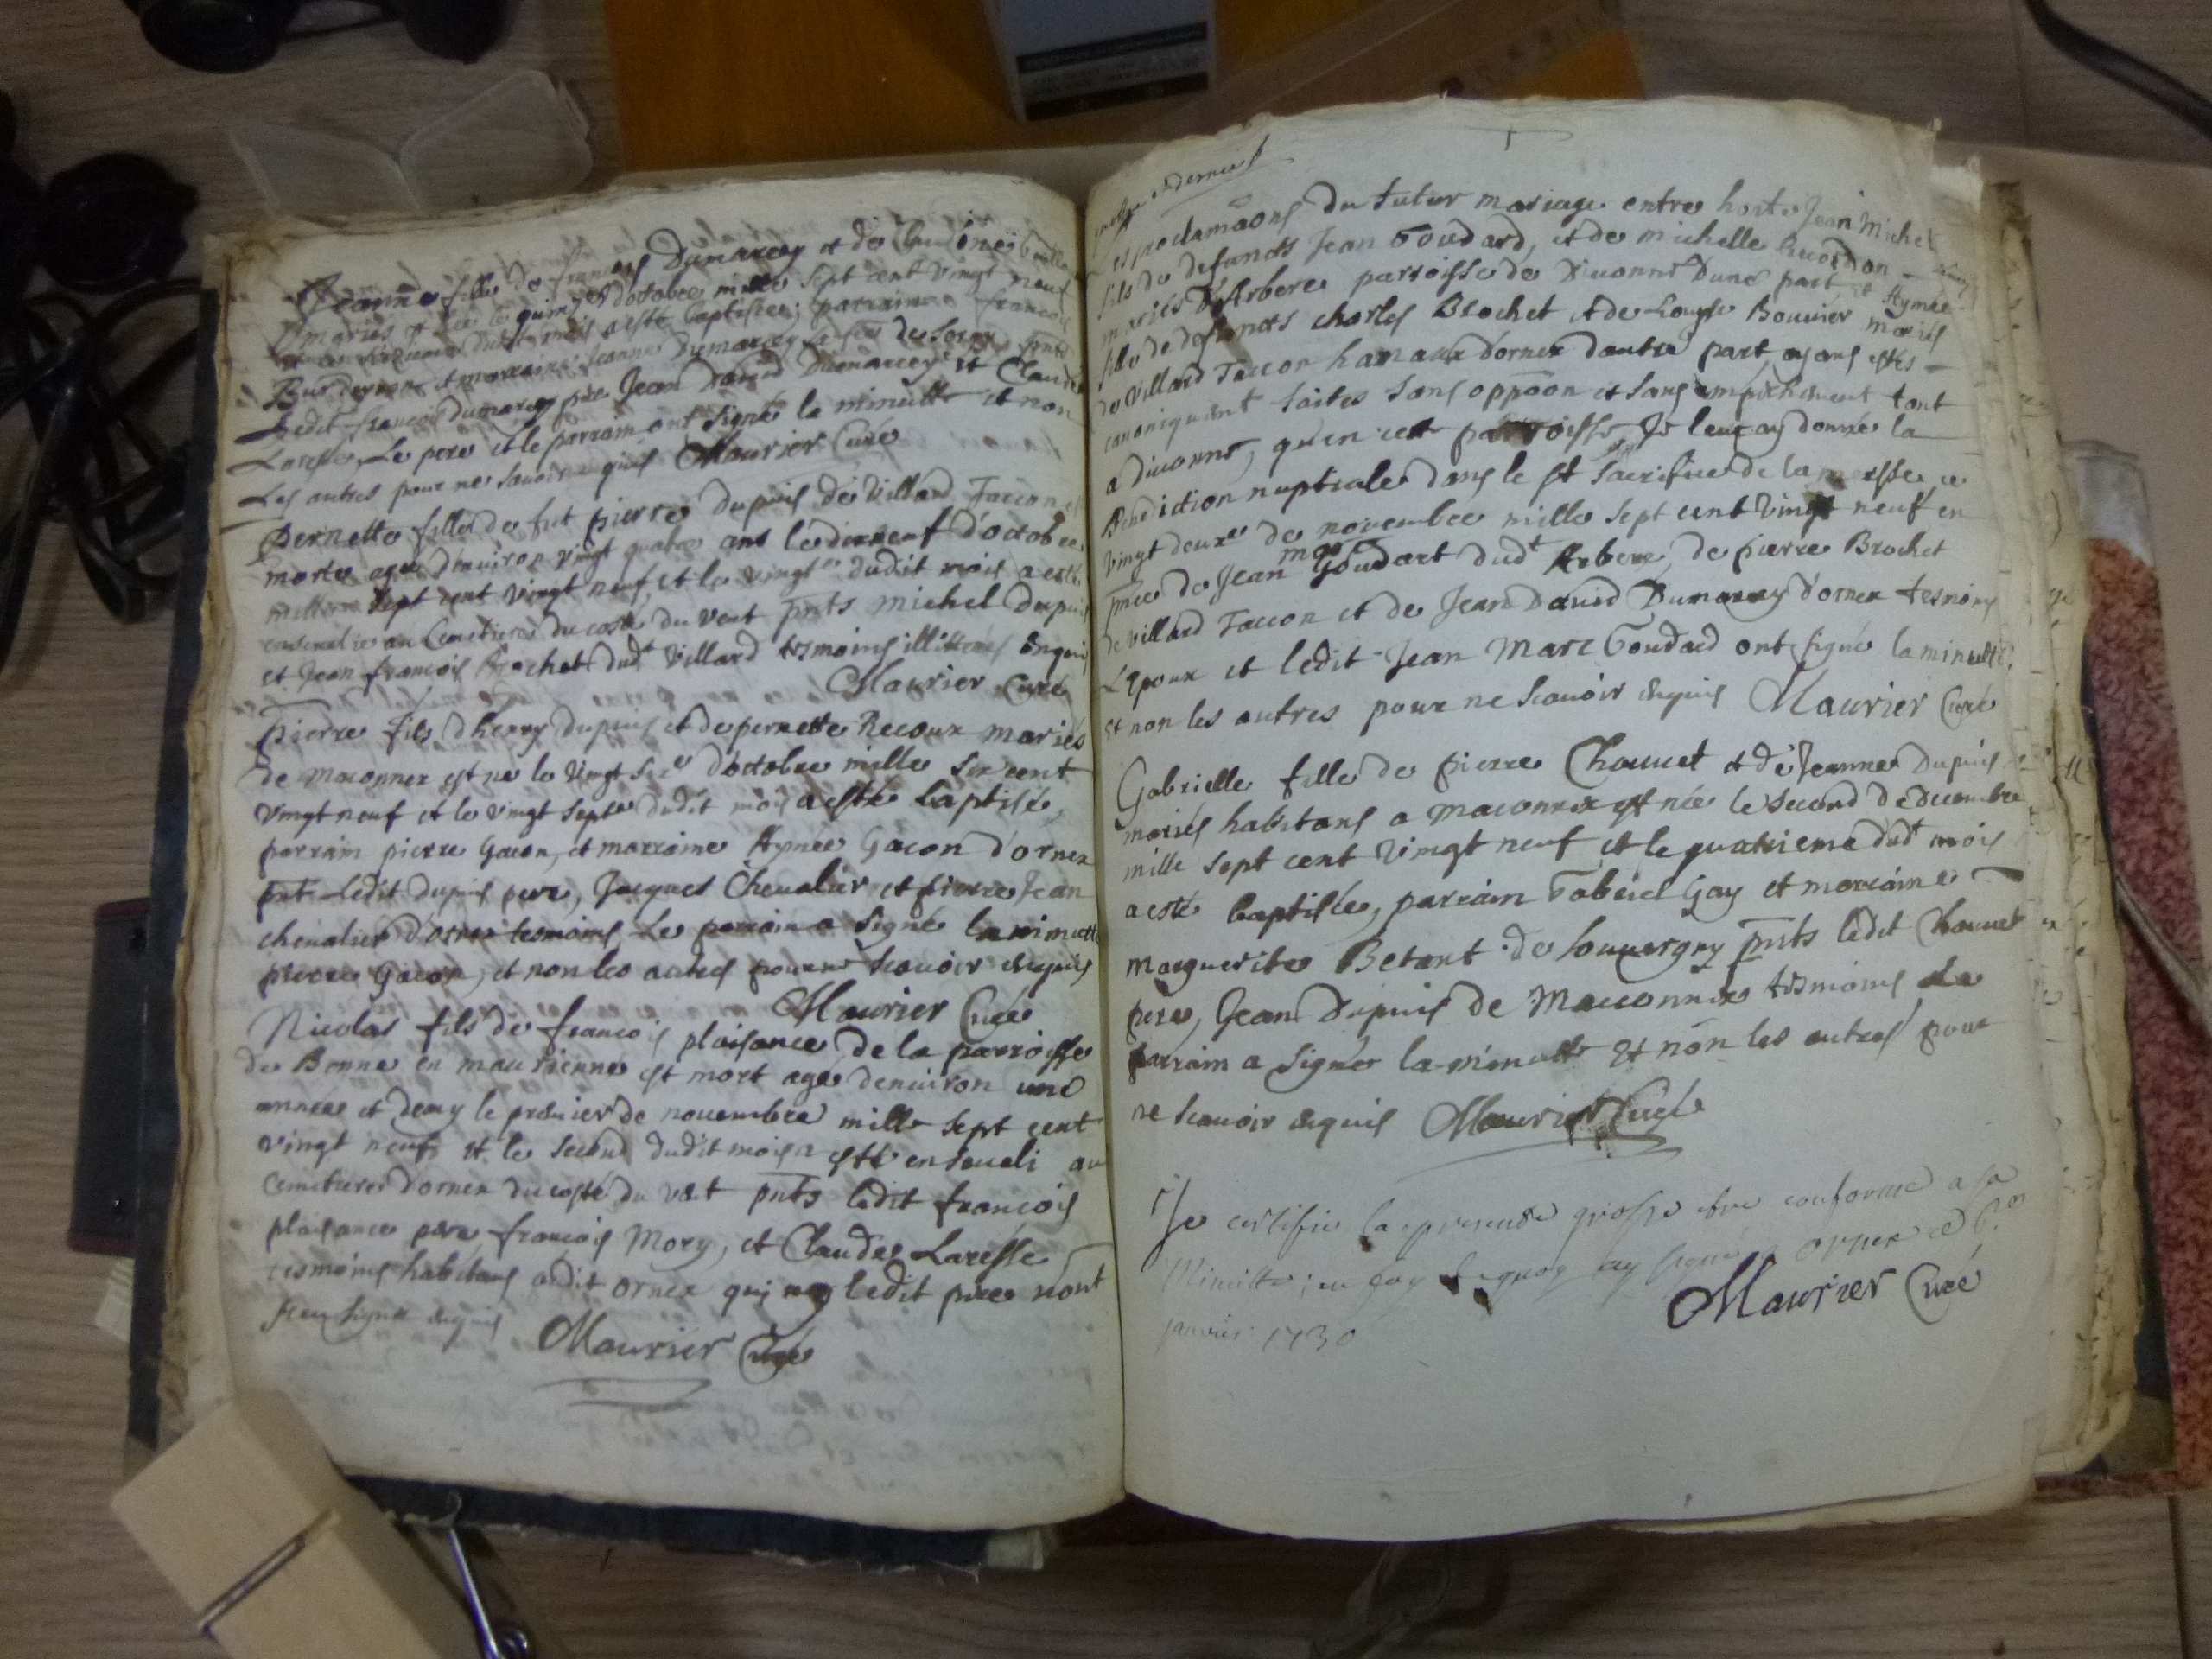 Jeanne fille de françois Dumarcey et de
mariés est née le quinze d'octobre mille sept cent vingt neuf
parrain françois
et marraine Jeanne Dumarcey
Ledit françois dumarcey père Jean David Dumarcey et Claude
Laresse, Le pere et le parrain ont signé la minutte et non
Les autres pour ne scavoir enquis Maurier Curé
Pernette fille de fut pierre dupuis de Villard Taccon est
morte agée d'environ vingt quatre ans le dixneuf d'octobre
mille sept cent vingt neuf, et le vingt dudit mois a esté
ensevelie au Cemetiere du costé du vent pnts michel dupuis
et Jean françois Brochet dudt Villard tesmoins illitterés enquis
Maurier Curé
Pierre fils d'henry dupuis et de pernette Recoux mariés
de maconnex est né le vingt six d'octobre mille six cent
vingt neuf et le vingt sept dudit mois a esté baptisé,
parrain pierre Gacon, et marraine Aymée Gacon d'ornex
pnt Ledit dupuis pere, Jacques Chevalier et pierre Jean
chevalier d'ornex tesmoins Le parrain a signé la minutte
pierre Gacon, et non les autres pour ne scavoir enquis
Maurier Curé
Nicolas fils de françois plaisance de la parroisse
de Bonne en maurienne est mort agé d'environ une
année et demy le premier de novembre mille sept cent
vingt neuf et le second dudit mois a esté enseveli au
Cemetiere d'ornex du costé du vent pnts ledit françois
plaisance pere françois Mory, et Claude Laresse
tesmoins habitans audit ornex qui ledit pere n'ont
sceu signer enquis
Maurier Curé
dernier
es proclamaons du futur mariage entre hoste Jean Michel
fils de defuncts Jean Goudard, et de michelle Ricordon
mariés d'Arbere parroisse de Divonne d'une part, et Aymée
fille de defuncts charles Brochet et de Louyse Bouvier mariés
de Villard Taccon hamaux d'ornex d'autre part ayans estés
canoniquement faites sans oppoon et sans empechement tant
a divonne, qu'en cette parroisse Je leur ay donné la
Benediction nuptiale dans le st sacrifice de la messe ce
vingt deux de novembre mille sept cent vingt neuf en
pnce de Jean marc Goudart dudt Arbere, de pierre Brochet
de villard Taccon et de Jean David Dumarcey d'ornex tesmoins
L'Epoux et ledit Jean Marc Goudard ont signé la minutte,
et non les autres pour ne scavoir enquis Maurier Curé
Gabrielle fille de pierre Chouvet et de Jeanne Dupuis
mariés habitans a maconnex est née le second de decembre
mille sept cent vingt neuf et le quatrieme dudt mois
a esté baptisée, parrain Gabriel Gay et marraine
marguerite Betant de Sauvergny pnts ledit Chouvet
pere, Jean Dupuis de Macconnex tesmoins Le
parrain a signé la minutte et non les autres pour
ne scavoir enquis Maurier Curé
Je certifie la presente grosse estre conforme a sa
Minutte; en foy de quoy ay signé a ornex ce
Janvier 1730
Maurier Curé